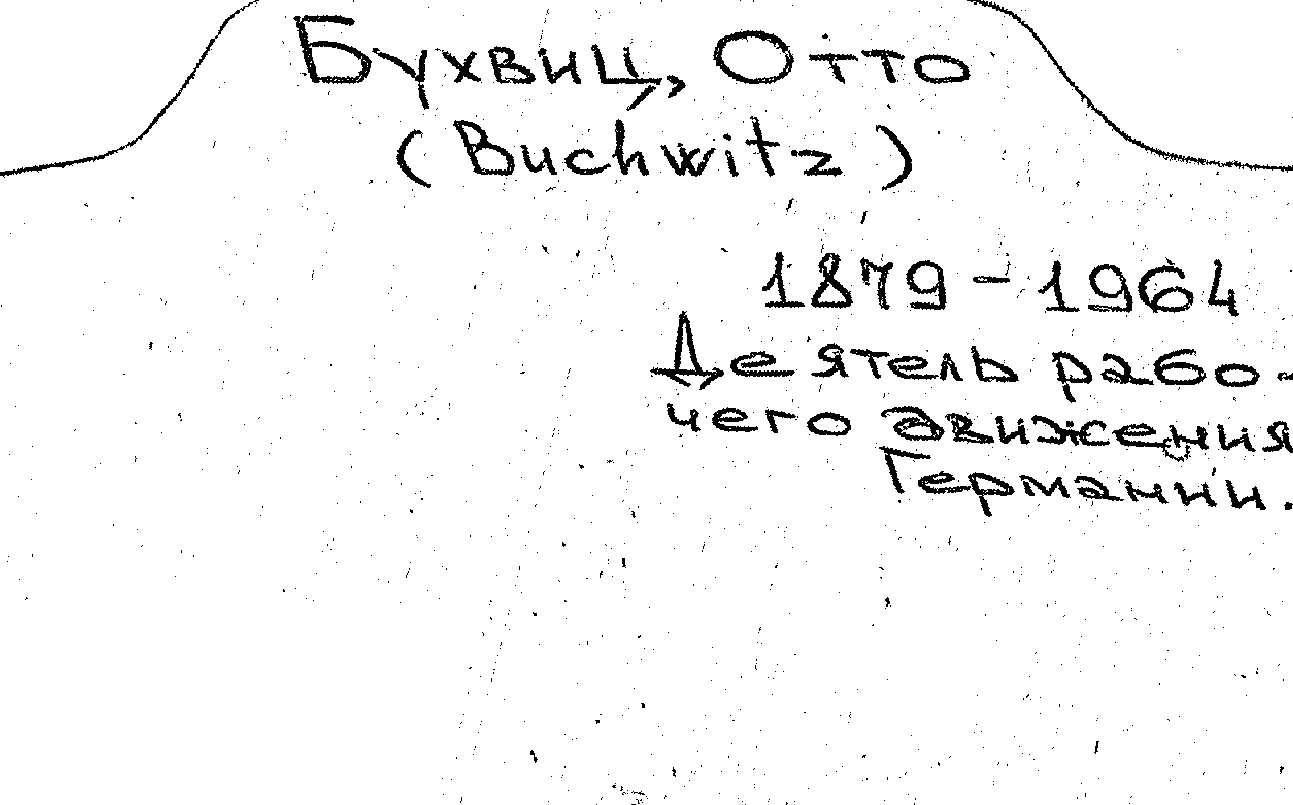 Бухвиц, Отто
(Buchwitz)
1879-1964
Деятель рабо-
чего движения
Германии.